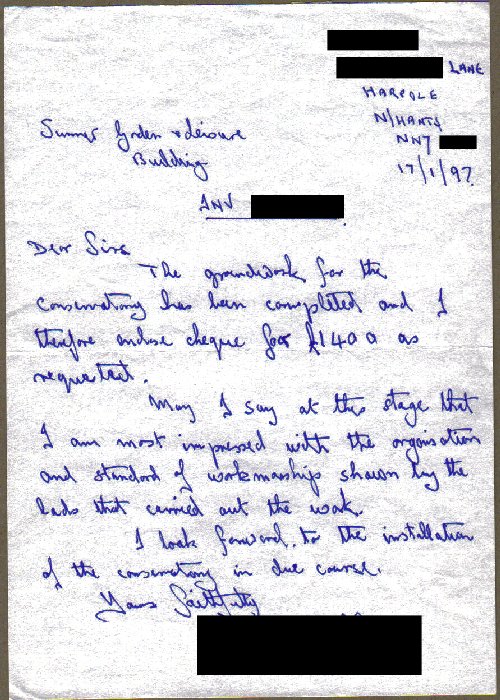 LANE
HARPOLE
N/HANTS
NN7
17/1/97.
Summer Garden & Leisure
Building
INV
Dear Sirs
The groundwork for the
conservatory has been completed and I
therefore enclose cheque for £1400 as
requested.
May I say at this stage that
I am most impressed with the organisation
and standard of workmanship shown by the
lads that carried out the work.
I look forward to the installation
of the conservatory in due course.
Yours faithfully